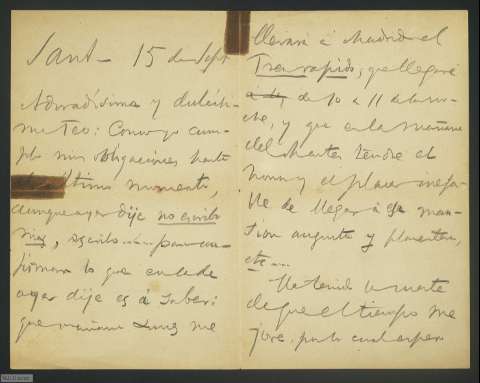 Sant– 15 de Sept
Adoradísima y dulcísi-
ma Teo: Como yo cum-
plo mis obligaciones hasta
el último momento,
aunque ayer dije no escribo
más, escribo ..... para con-
firmar lo que en la de
ayer dije es á saber:
que mañana Lunes me
llevará á Madrid el
Tren rápido, que llegará
de 10 a 11 de la no-
che, y que en la mañana
del Martes tendré el
honor y el placer inefa-
ble de llegar á esa man-
sion augusta y placentera,
etc....
He tenido la suerte
de que el tiempo me
jore. por lo cual espero